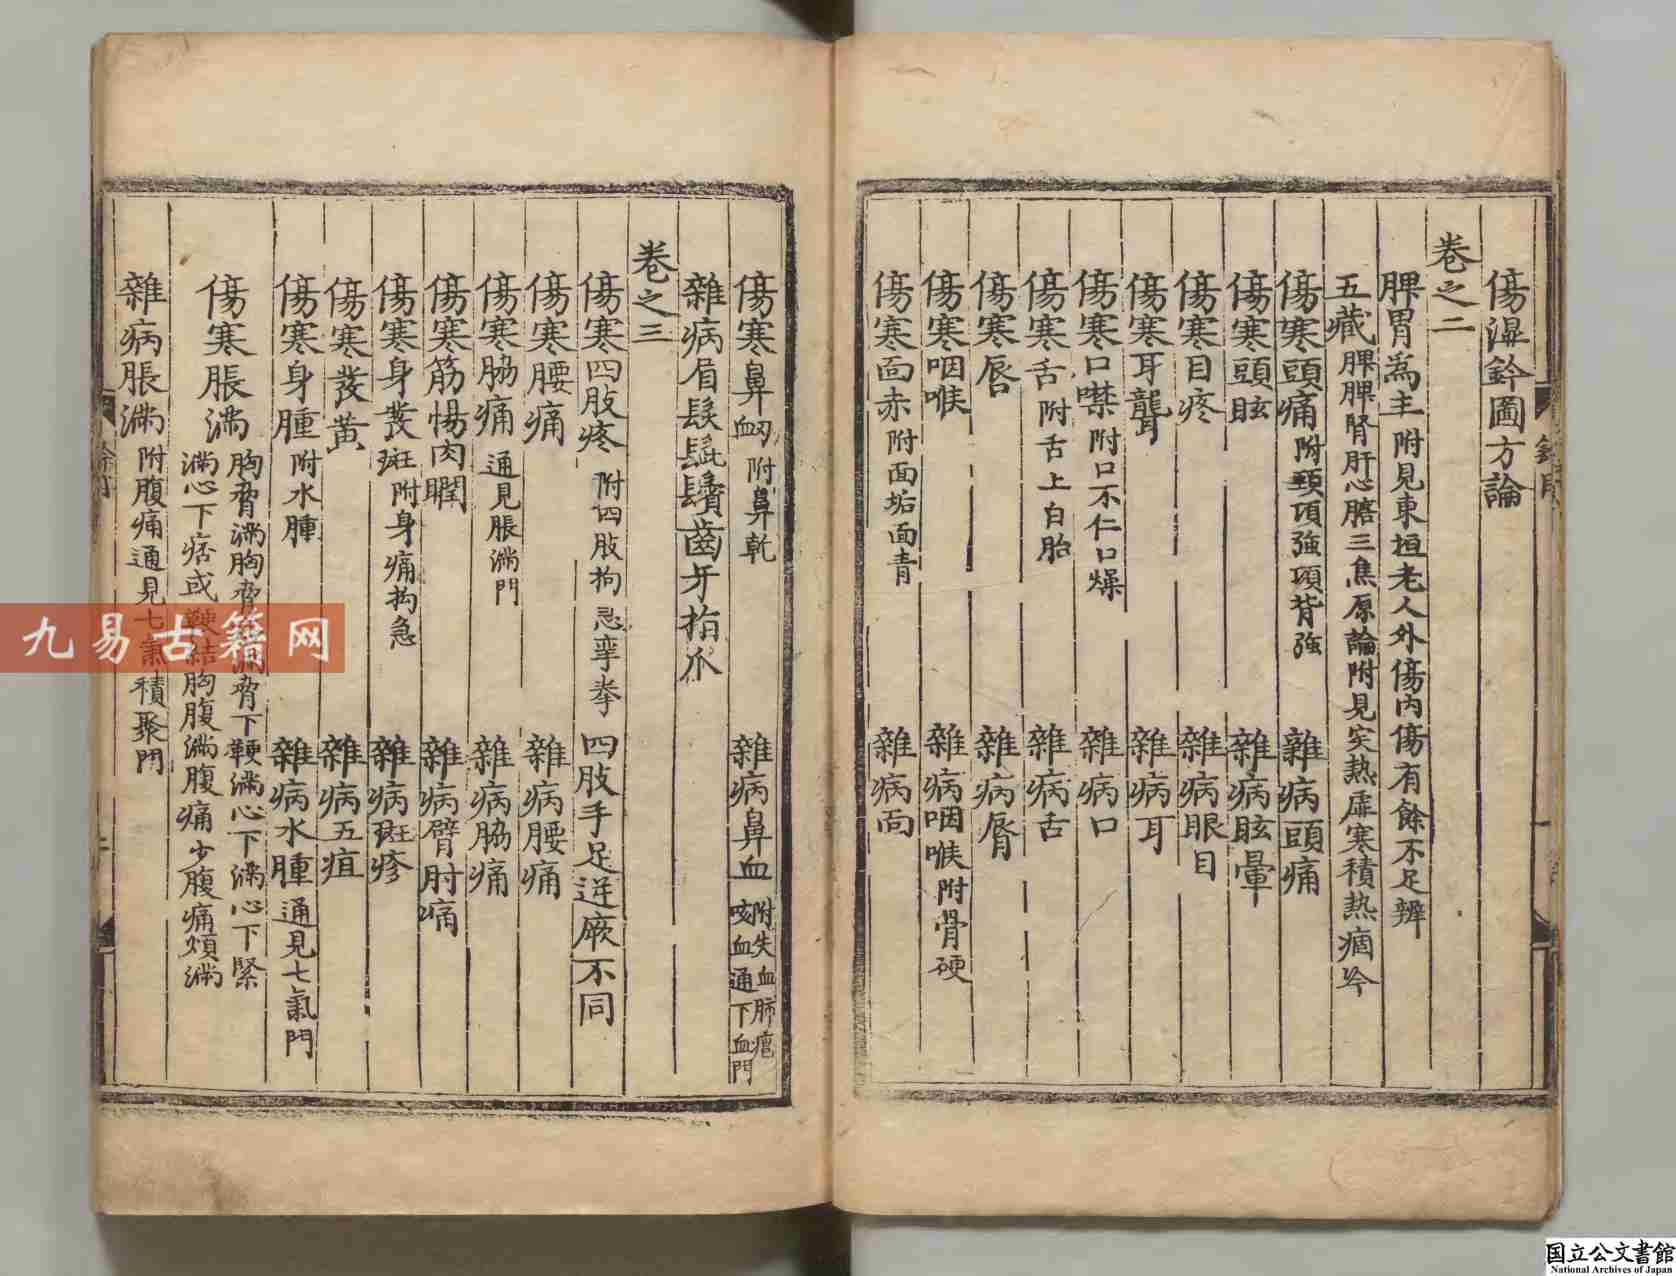 傷濕鈐圖方論
卷之二
脾胃為主附見東垣老人外傷內傷有餘不足辨
五藏脾腎肝心膽三焦原論附見实熱虛寒積熱痼冷
傷寒頭痛附頸項強項背強 雜病頭痛
傷寒頭眩 雜病眩暈
傷寒目疼 雜病眼目
傷寒耳聾 雜病耳
傷寒口噤附口不仁口燥 雜病口
傷寒舌附舌上白胎 雜病舌
傷寒唇 雜病唇
傷寒咽喉 雜病咽喉附骨硬
傷寒面赤附面垢面青 雜病面
傷寒鼻衄附鼻乾 雜病鼻血附失血肺瘡咳血通下血門
雜病眉髮髭鬚齒牙指爪
卷之三
傷寒四肢疼附四肢拘急攣拳 四肢手足逆厥不同
傷寒腰痛 雜病腰痛
傷寒脇痛通見脹滿門 雜病脇痛
傷寒筋惕肉瞤 雜病臂肘痛
傷寒身發斑附身痛拘急 雜病斑疹
傷寒發黃 雜病五疸
傷寒身腫附水腫 雜病水腫通見七氣門
傷寒脹滿胸脅滿胸脅下鞕滿心下滿心下緊
滿心下痞或鞕結胸腹滿腹痛少腹痛煩滿
雜病脹滿附腹痛通見七氣積聚門
九易古籍网
国立公文書館
National Archives of Japan